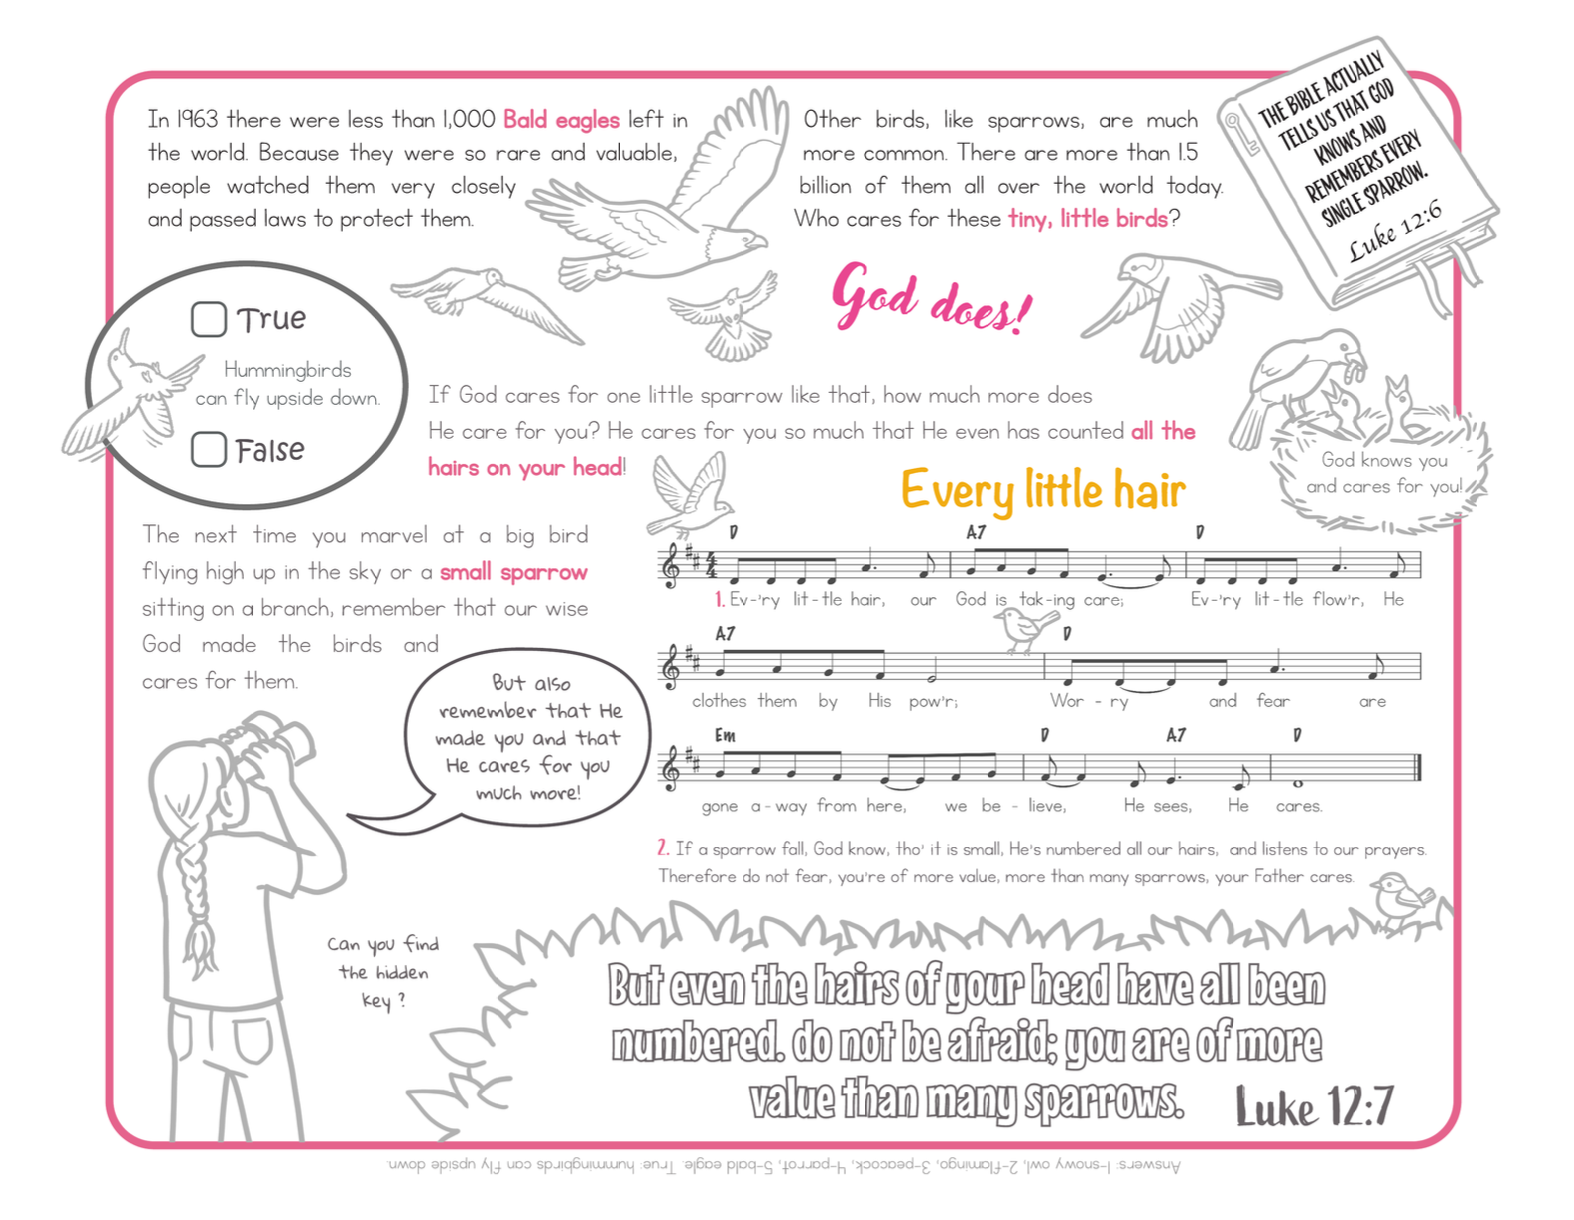 In 1963 there were less than 1,000 Bald eagles left in
the world. Because they were so rare and valuable,
people watched them very closely
and passed laws to protect them.
Other birds, like sparrows, are much
more common. There are more than 1.5
billion of them all over the world today.
Who cares for these tiny, little birds?
THE BIBLE ACTUALLY
TELLS US THAT GOD
KNOWS AND
REMEMBERS EVERY
SINGLE SPARROW.
Luke 12:6
God does!
True
Hummingbirds
can fly upside down.
False
If God cares for one little sparrow like that, how much more does
He care for you? He cares for you so much that He even has counted all the
hairs on your head!
God knows you
and cares for you!
The next time you marvel at a big bird
flying high up in the sky or a small sparrow
sitting on a branch, remember that our wise
God made the birds and
cares for them.
But also
remember that He
made you and that
He cares for you
much more!
Every little hair
D A7 D
4
4
1. Ev-'ry lit-tle hair, our God is tak-ing care; Ev-'ry lit-tle flow'r, He
A7 D
clothes them by His pow'r; Wor - ry and fear are
Em D A7 D
gone a-way from here, we be - lieve, He sees, He cares.
2. If a sparrow fall, God know, tho' it is small, He's numbered all our hairs, and listens to our prayers.
Therefore do not fear, you're of more value, more than many sparrows, your Father cares.
Can you find
the hidden
key ?
But even the hairs of your head have all been
numbered. do not be afraid; you are of more
value than many sparrows.
Luke 12:7
Answers: 1-snowy owl, 2-flamingo, 3-peacock, 4-parrot, 5-bald eagle. True: hummingbirds can fly upside down.